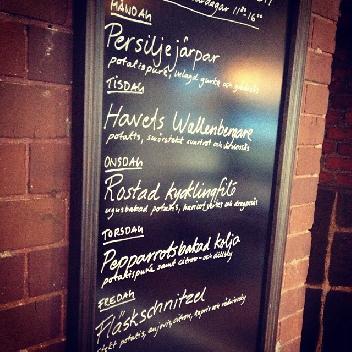 MÅNDAG
vardagar 11:00-16:00
Persiljejärpar
potatispuré, inlagd gurka och gräddsås
TISDAG
Havets Wallenbergare
potatis, smörstekt morot och
ONSDAG
Rostad kycklingfilé
ugnsbakad potatis, haricot verts och dragonsås
TORSDAG
Pepparrotsbakad kolja
potatispuré samt citron- och dillsky
FREDAG
Fläskschnitzel
stekt potatis, ansjovis, citron, kapris och rödvinssky